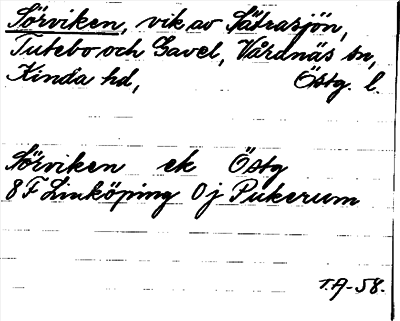 Sörviken, vik av Sätrasjön,
Tutebo och Gavel, Vårdnäs sn,
Kinda hd, Östg. l.
Sörviken ek Östg
8 F Linköping 0 j Pukerum
T.A-58.